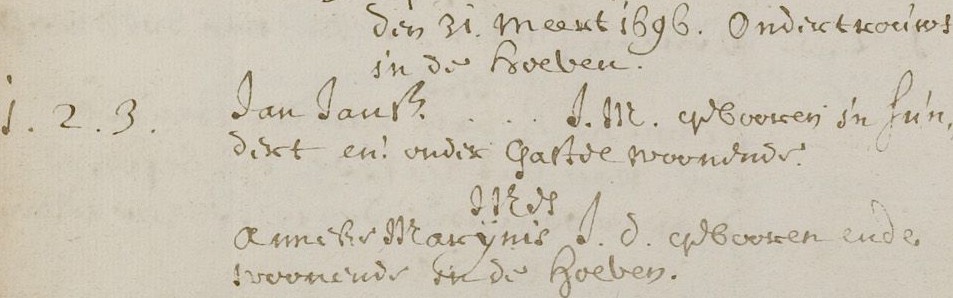 den 31. Meert 1696. Ondertrouwt
in de Hoeven.
1. 2. 3. Jan Jansz. . . . J. M. geboren in Sun,
dert en: onder Gastel woonende.
Met
Anneke Marijnis J. d. gebooren ende
woonende in de Hoeven.